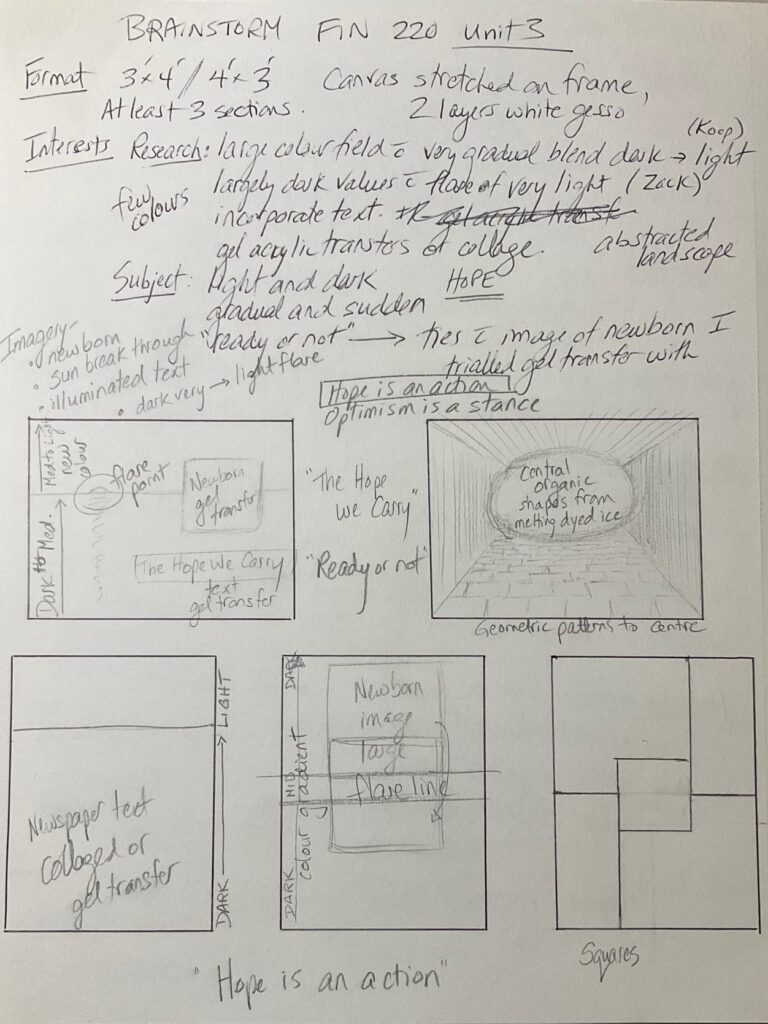 BRAINSTORM FIN 220 Unit 3
Format 3'x4' // 4'x3' Canvas stretched on frame,
At least 3 sections. 2 layers white gesso
(Koop)
Interests Research: large colour field c̄ very gradual blend dark → light
few colours
largely dark values c̄ flare of very light (Zack)
incorporate text.
gel acrylic transfers or collage. abstracted landscape
Subject: light and dark HOPE
gradual and sudden
"ready or not" → ties c̄ image of newborn I
trialled gel transfer with
Imagery-
• newborn
• sun break through
• illuminated text
• dark very → light flare
Hope is an action
Optimism is a stance
Dark to Med.
Med to Light
new colour
flare point
Newborn
gel
transfer
The Hope We Carry
text
gel transfer
"The Hope
we Carry"
"Ready or not"
Central
organic
shapes from
melting dyed ice
Geometric patterns to centre
Newspaper text
collaged or
gel transfer
DARK → LIGHT
DARK MID DARK
colour gradient
Newborn
image
large
flare line
Squares
"Hope is an action"